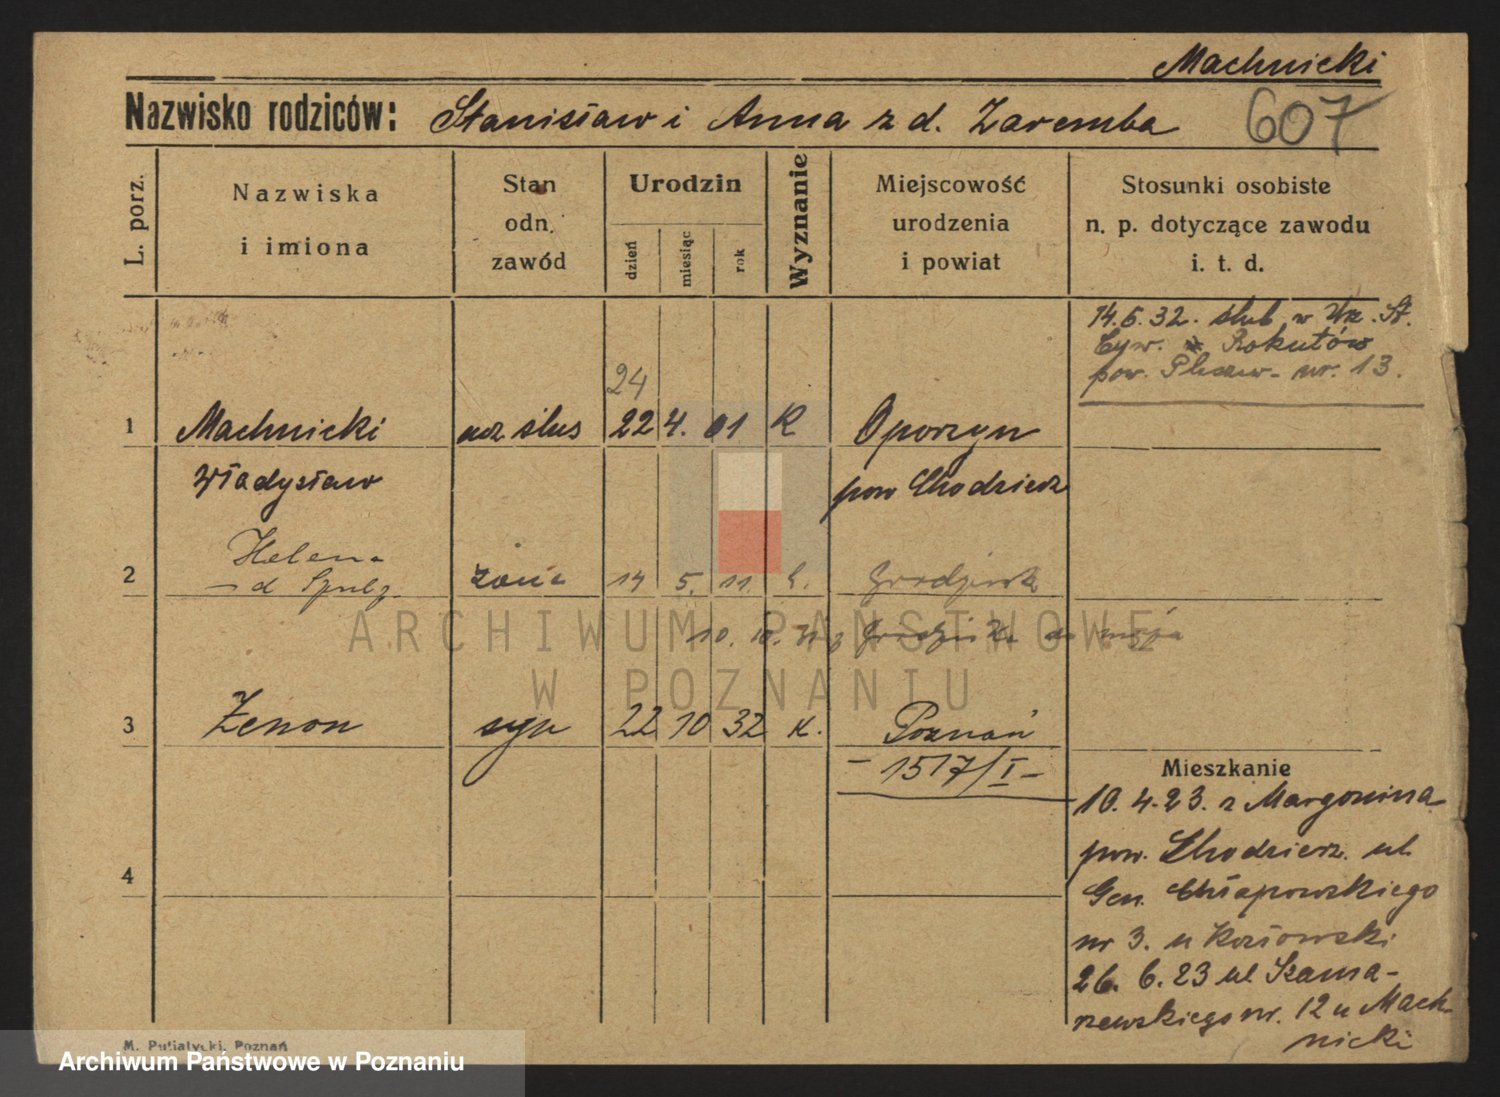 Machnicki
Nazwisko rodziców: Stanisław i Anna z d. Zaremba 607
L. porz.
Nazwiska
i imiona
Stan
odn.
zawód
Urodzin
dzień
miesiąc
rok
Wyznanie
Miejscowość
urodzenia
i powiat
Stosunki osobiste
n. p. dotyczące zawodu
i. t. d.
14.5.32. ślub w Urz. St.
Cyw. Rokutów
pow. Plesz. nr. 13.
24
1 Machnicki ucz ślus 22 4. 01 K Oporzyn
Władysław pow Chodzież
Helena
2 żona 14 5. 11. Grodzisk
10. z do męża
ARCHIWUM PAŃSTWOWE
W POZNANIU
3 Zenon syn 22 10 32 K. Poznań
– 1517/I –
Mieszkanie
10.4.23. z Margonina
pow. Chodzież. ul
4
Gen. Chłapowskiego
nr 3. u Kozłowski
26. 6. 23 ul Szama-
rzewskiego nr. 12 u Mach-
nicki
M. Putiatycki, Poznań
Archiwum Państwowe w Poznaniu